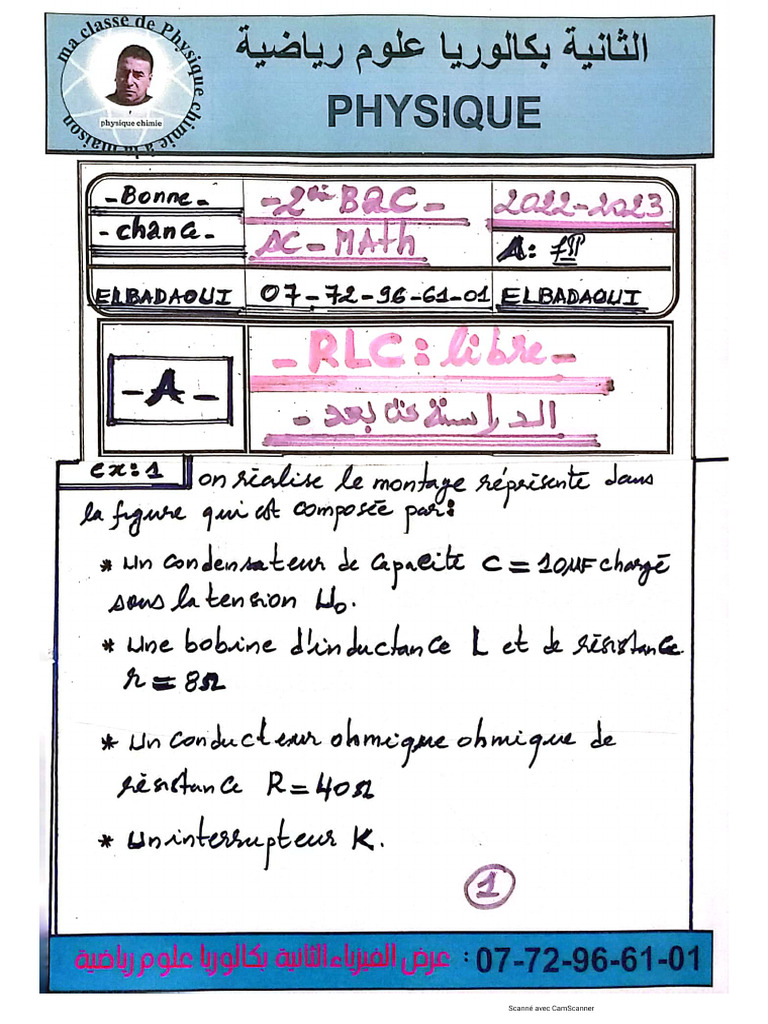 ma classe de Physique chimie à la maison
physique chimie
الثانية بكالوريا علوم رياضية
PHYSIQUE
- Bonne -
- chance -
- 2ème BAC -
SC - MATh
2022-2023
ELBADAOUI
07-72-96-61-01
ELBADAOUI
- A -
- RLC: libre -
- الدراسة عن بعد
ex: 1
on réalise le montage réprésente dans
la figure qui est composée par:
* Un condensateur de capacité C = 10µF chargé
sous la tension U₀.
* Une bobine d'inductance L et de résistance
r = 8Ω
* Un conducteur ohmique ohmique de
résistance R = 40Ω
* Un interrupteur K.
1
عرض الفيزياء الثانية بكالوريا علوم رياضية : 07-72-96-61-01
Scanné avec CamScanner